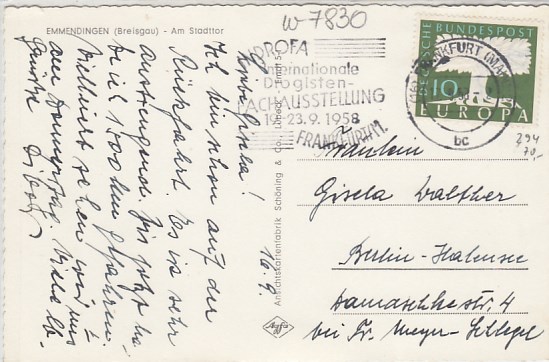 EMMENDINGEN (Breisgau) - Am Stadttor
W 7830
DROFA
Internationale
Drogisten-
FACHAUSSTELLUNG
19.-23.9.1958
FRANKFURT/M.
FRANKFURT (MAIN)
bc
DEUTSCHE BUNDESPOST
10
EUROPA
294
70,-
Liebe Gisela!
Ich bin schon auf der
Rückfahrt. Es ist sehr
anstrengend. Bis jetzt ha-
be ich 1500 km gefahren.
Vielleicht sehen wir uns
am Donnerstag. Viele lb.
Grüße
16.9.
Ansichtskartenfabrik Schöning & Co., Lübeck
Agfa
Fräulein
Gisela Walther
Berlin-Halensee
Damaschkestr. 4
bei Fr. Meyer-Schlegel